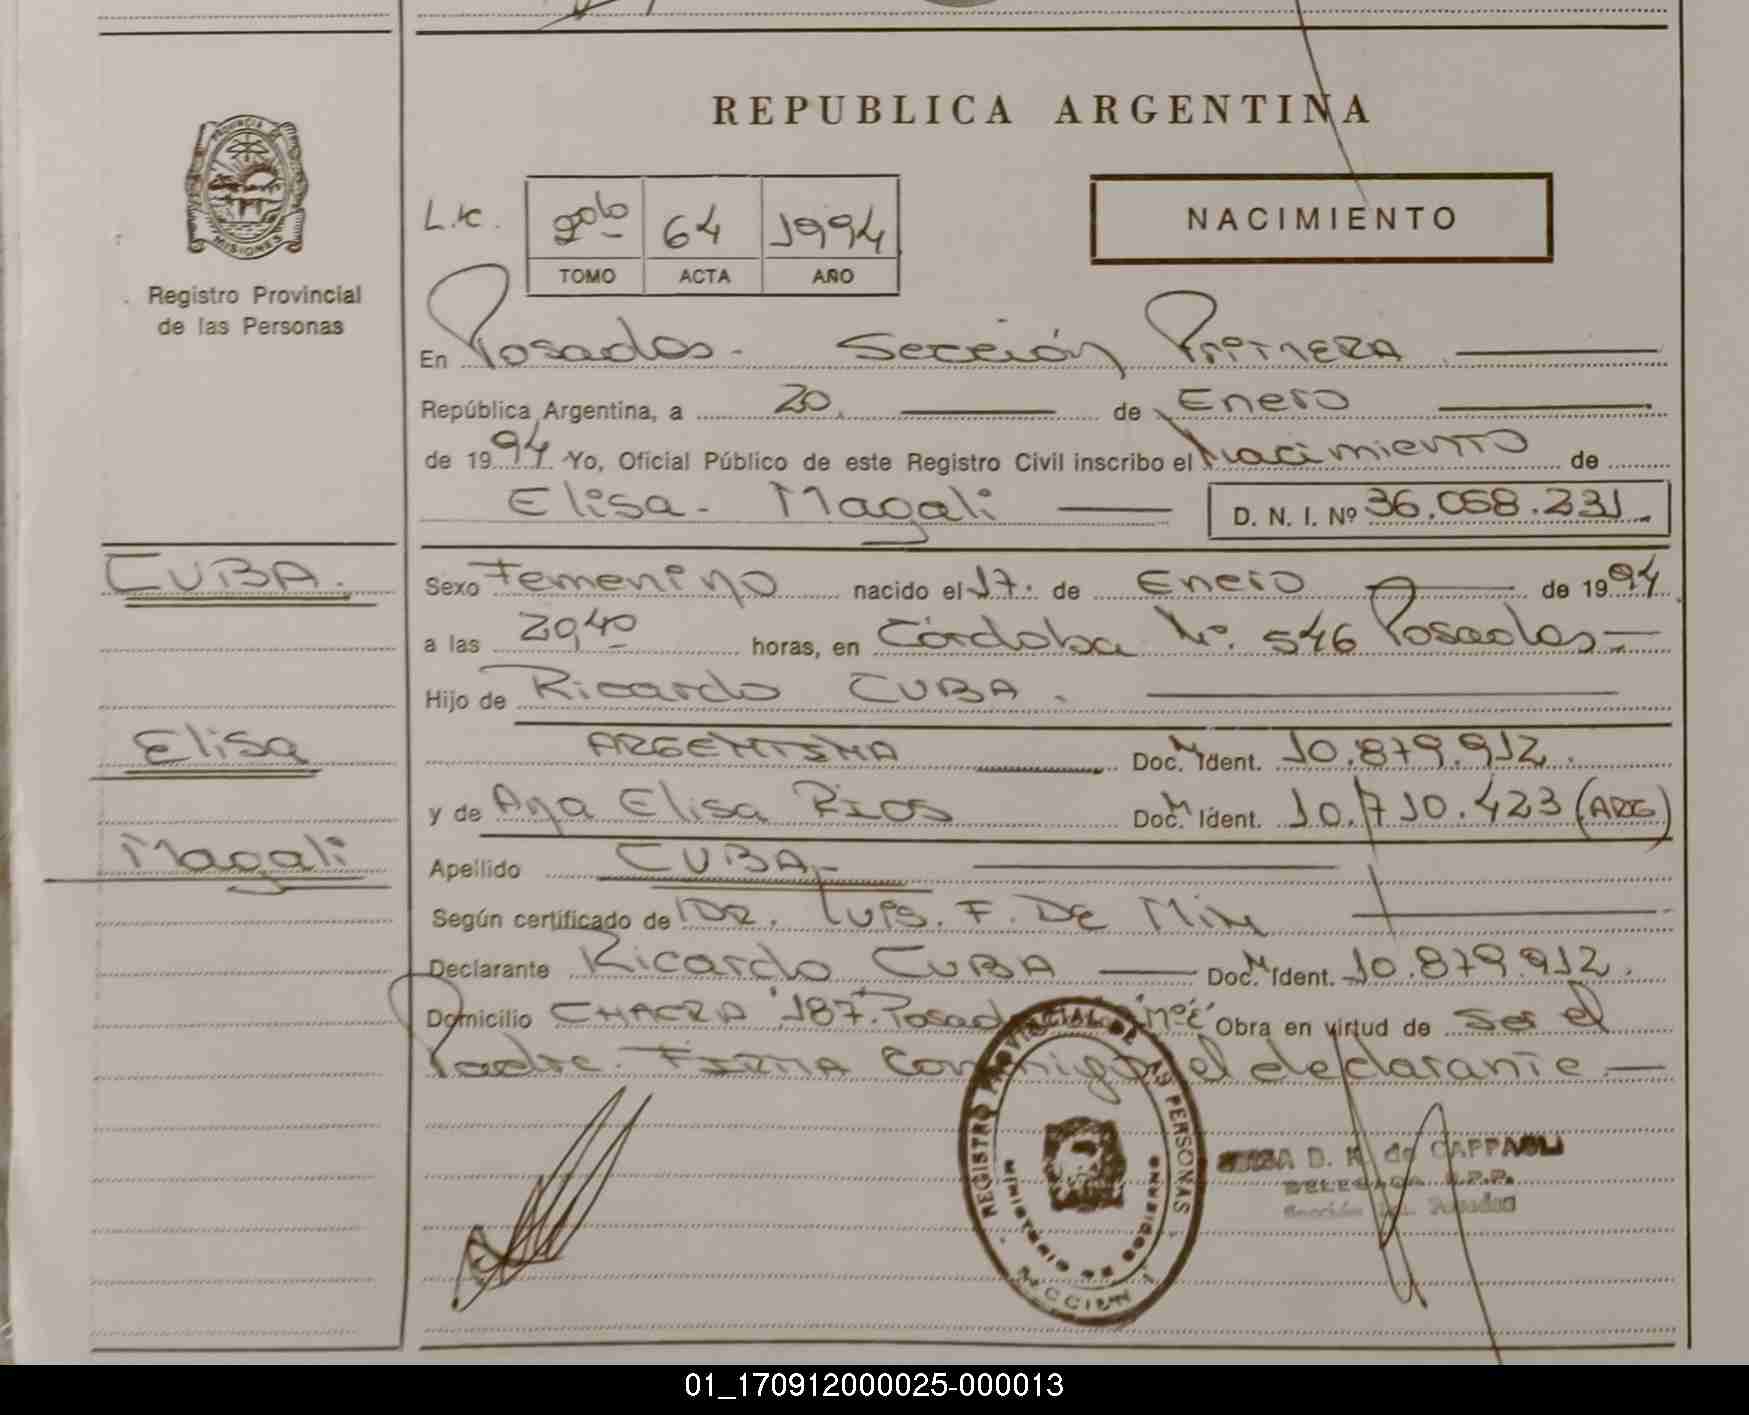 REPUBLICA ARGENTINA
PROVINCIA DE
MISIONES
Registro Provincial
de las Personas
L.c.
2do 64 1994
TOMO ACTA AÑO
NACIMIENTO
En Posadas - Sección Primera
República Argentina, a 20 de Enero
de 1994 Yo, Oficial Público de este Registro Civil inscribo el Nacimiento de
Elisa - Magali D. N. I. Nº 36.058.231
CUBA.
Sexo Femenino nacido el 17. de Enero de 1994
a las 20,40 horas, en Córdoba Nº. 546 Posadas
Hijo de Ricardo CUBA.
Elisa
ARGENTINA Doc. M Ident. 10.879.912
y de Ana Elisa RIOS Doc. M Ident. 10.710.423 (ARG)
Magali
Apellido CUBA
Según certificado de DR. Luis. F. DE
Declarante Ricardo CUBA Doc. M Ident. 10.879.912.
Domicilio CHACRA 187. Obra en virtud de ser el
Padre. FIRMA Conmigo el declarante
REGISTRO PROVINCIAL DE LAS PERSONAS
MINISTERIO DE GOBIERNO
SECCION 1
D. de CAPPAULI
DELEGADA R.P.P.
Sección Posadas
01_170912000025-000013